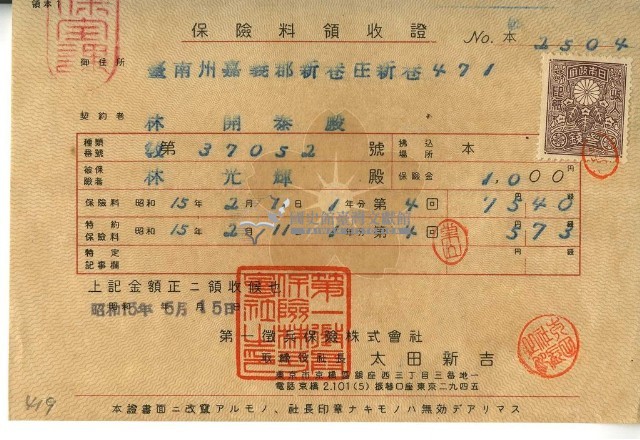 領本1
保險料領收證
No. 本 2504
御住所
臺南州嘉義郡新巷庄新巷471
契約者
林開泰殿
種類番號 第37052號 拂込場所 本
被保險者 林光輝殿 保險金 1,000円
保險料 昭和15年2月11日 1年分第4回 7340
特約保險料 昭和15年2月11 年分第4回 373
特定記事欄
上記金額正ニ領收候也
昭和15年5月15日
第一徵兵保險株式會社
取締役社長 太田新吉
東京市京橋區銀座西三丁目三番地一
電話京橋2,101(5)振替口座東京二九四五
本證書面ニ改竄アルモノ、社長印章ナキモノハ無効デアリマス
419